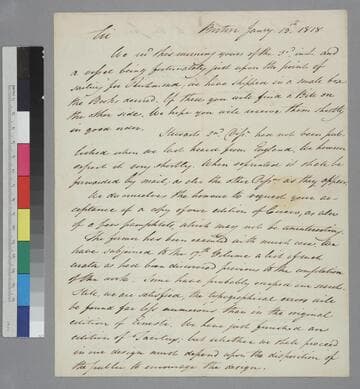 Sir Boston Jany 12th 1818
We recd this morning yours of the 3d inst. and
a vessel being fortunately just upon the point of
sailing for Richmond, we have shipped in a small box
the Books desired. Of these you will find a Bill on
the other side. We hope you will receive them shortly
in good order.
Stewarts 2nd Dissn had not been pub-
lished when we last heard from England. We however
expect it very shortly. When reprinted it shall be
forwarded by mail, as also the other Dissns as they appear.
We do ourselves the honour to request your ac-
ceptance of a copy of our edition of Cicero, as also
of a few pamphlets, which may not be uninteresting.
The former has been executed with much care. We
have subjoined to the Volume a list of such
errata as had been discovered previous to the completion
of the work. Some have probably escaped our search.
Still, we are satisfied, the typographical errors will
be found far less numerous than in the original
edition of Ernesti. We have just finished an
edition of Tacitus, but whether we shall proceed
in our design must depend upon the disposition of
the public to encourage the design.